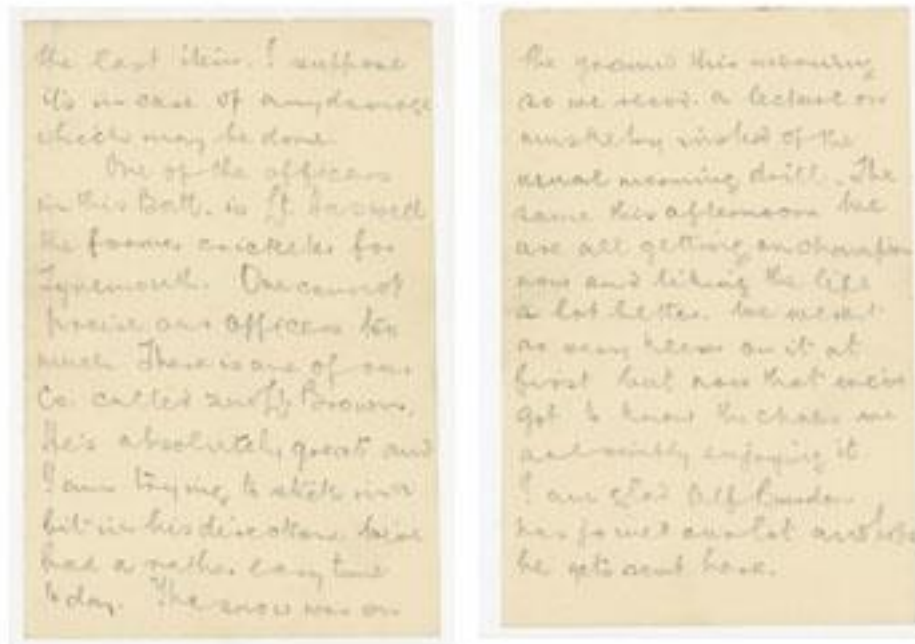 the last item. I suppose
it's in case of any damage
which may be done.
One of the officers
in this Batt. is Lt. Haswell
the former cricketer for
Tynemouth. One cannot
praise our officers too
much. There is one of our
Co. called 2nd Lt. Brown.
He's absolutely great and
I am trying to stick in a
bit in his direction. We've
had a rather easy time
today. The snow was on
the ground this morning
so we had a lecture on
musketry instead of the
usual morning drill. The
same this afternoon. We
are all getting on champion
now and liking the life
a lot better. We weren't
so very keen on it at
first but now that we've
got to know the chaps we
are enjoying it
I am glad Alf
has joined our lot and hope
he gets sent here.